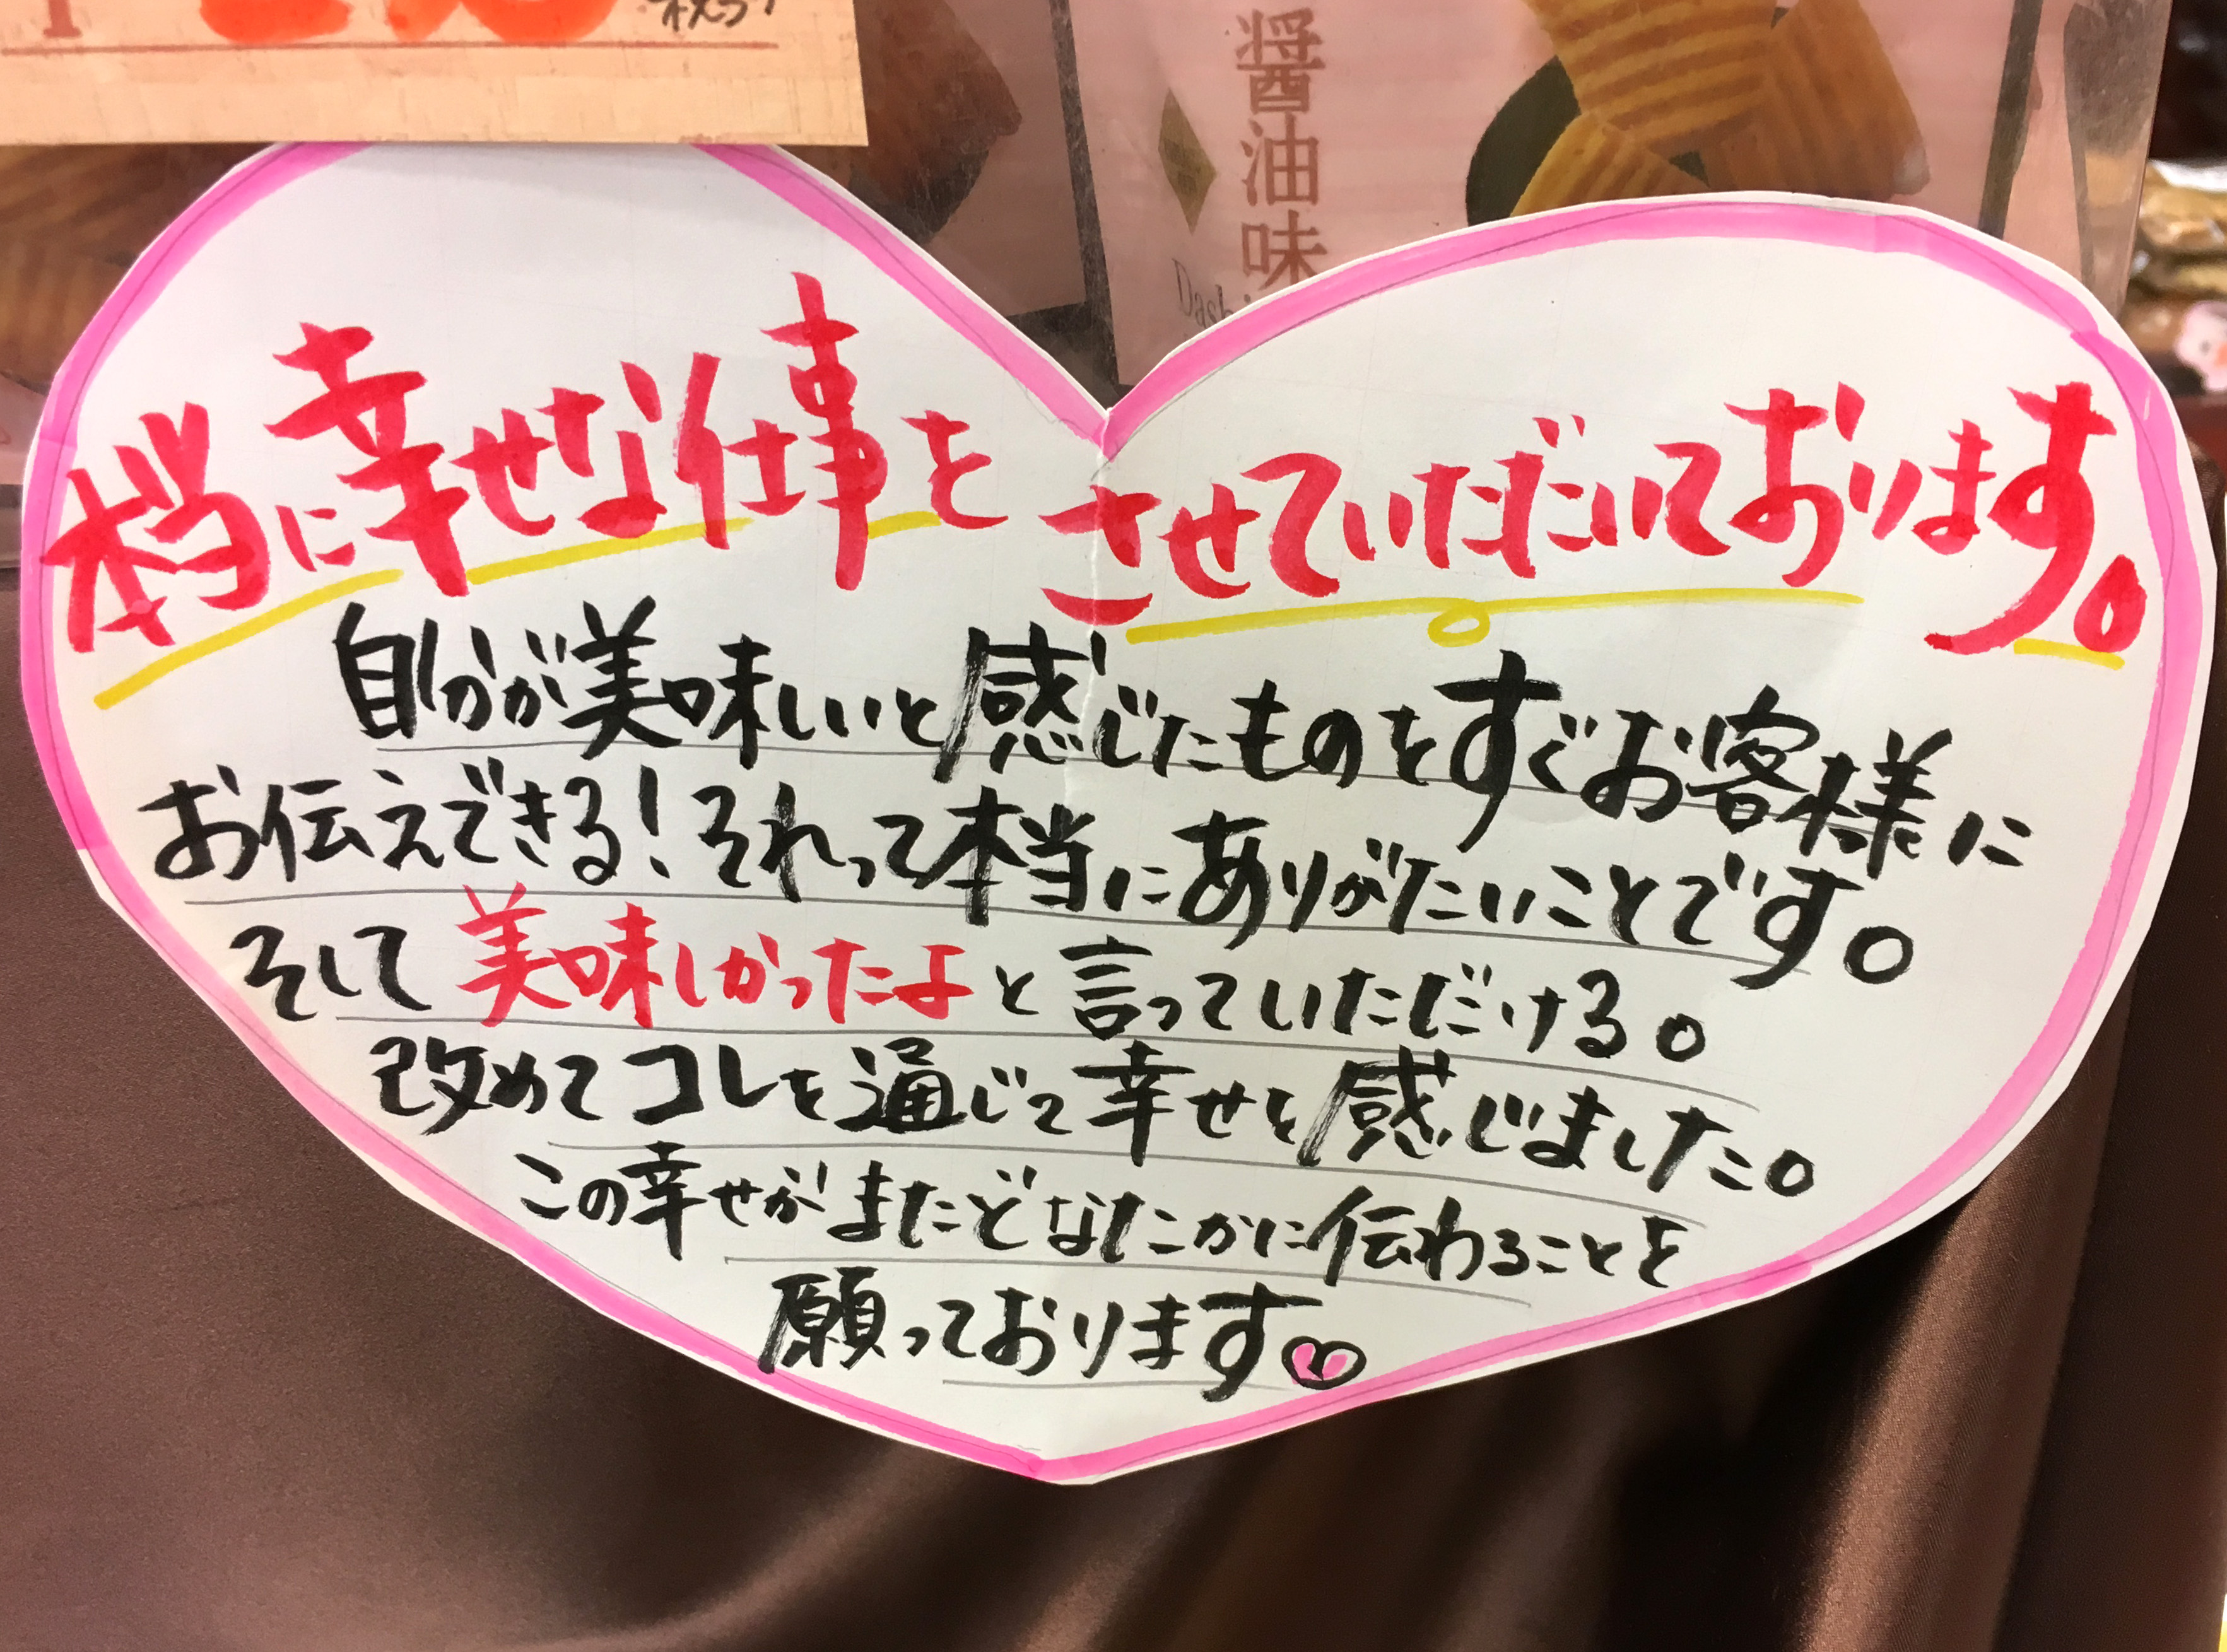 醤油味
Dash
本当に幸せな仕事をさせていただいております。
自分が美味しいと感じたものをすぐお客様に
お伝えできる!それって本当にありがたいことです。
そして美味しかったよと言っていただける。
改めてコレを通じて幸せを感じました。
この幸せがまたどなたかに伝わることを
願っております